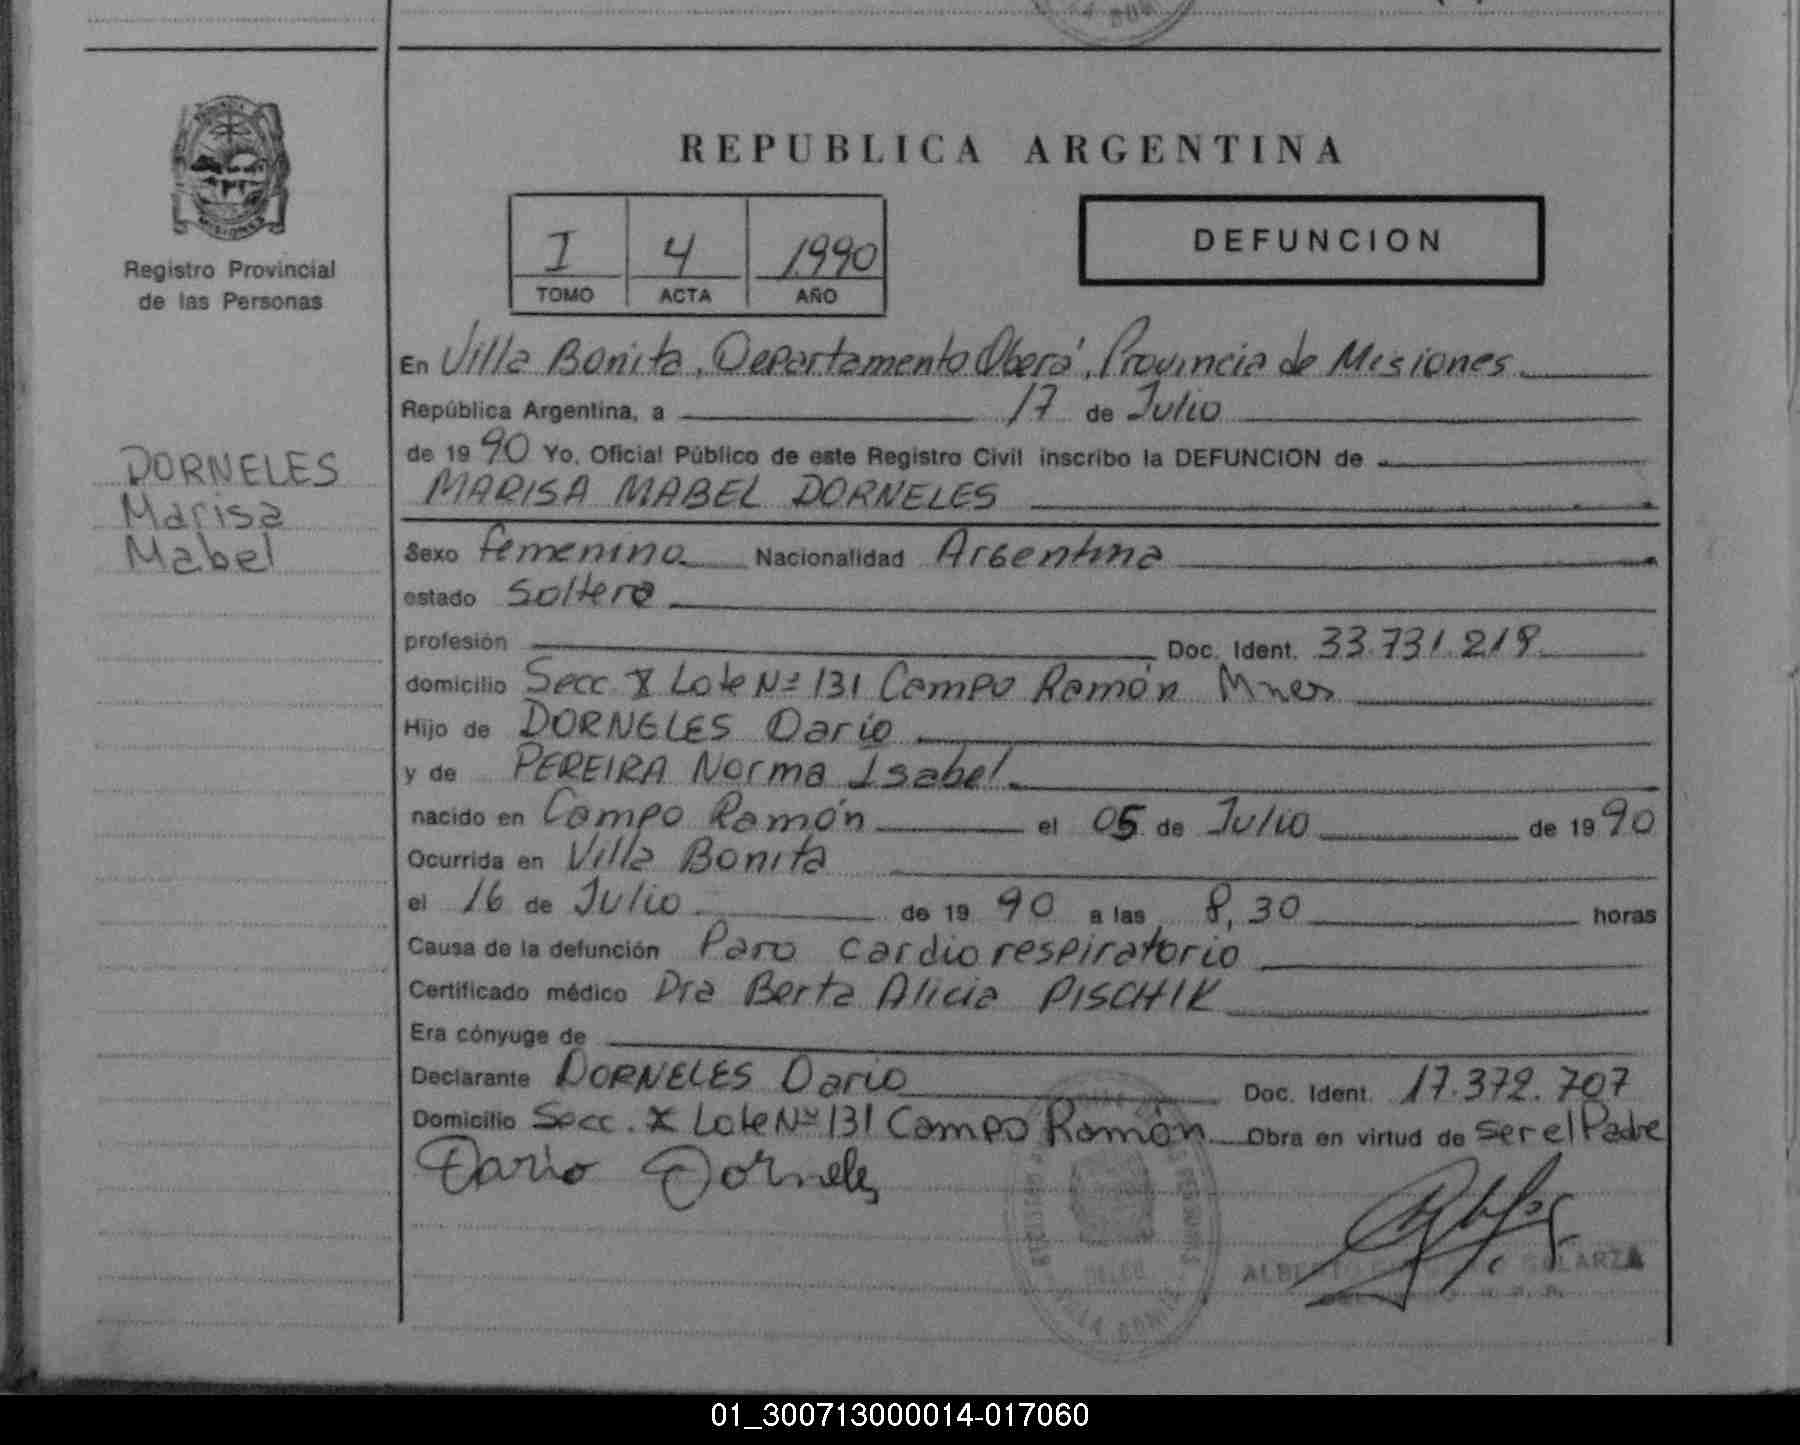 REPUBLICA ARGENTINA
MISIONES
Registro Provincial
de las Personas
I 4 1990
TOMO ACTA AÑO
DEFUNCION
DORNELES
Marisa
Mabel
En Villa Bonita, Departamento Oberá, Provincia de Misiones
República Argentina, a 17 de Julio
de 1990 Yo, Oficial Público de este Registro Civil inscribo la DEFUNCION de
MARISA MABEL DORNELES
Sexo femenino Nacionalidad Argentina
estado soltera
profesión Doc. Ident. 33.731.219
domicilio Secc. X Lote Nº 131 Campo Ramón Mnes
Hijo de DORNELES Dario
y de PEREIRA Norma Isabel
nacido en Campo Ramón el 05 de Julio de 1990
Ocurrida en Villa Bonita
el 16 de Julio de 1990 a las 8,30 horas
Causa de la defunción Paro cardio respiratorio
Certificado médico Dra Berta Alicia PISCHIK
Era cónyuge de
Declarante DORNELES Dario Doc. Ident. 17.372.707
Domicilio Secc. X Lote Nº 131 Campo Ramón Obra en virtud de ser el Padre
Dario Dorneles
ALBERTO GALARZA
01_300713000014-017060